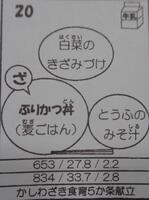 20
牛乳
白菜の
きざみづけ
ざ
ぶりかつ丼
(麦ごはん)
とうふの
みそ汁
653 / 27.8 / 2.2
834 / 33.7 / 2.8
かしわざき食育5か条献立